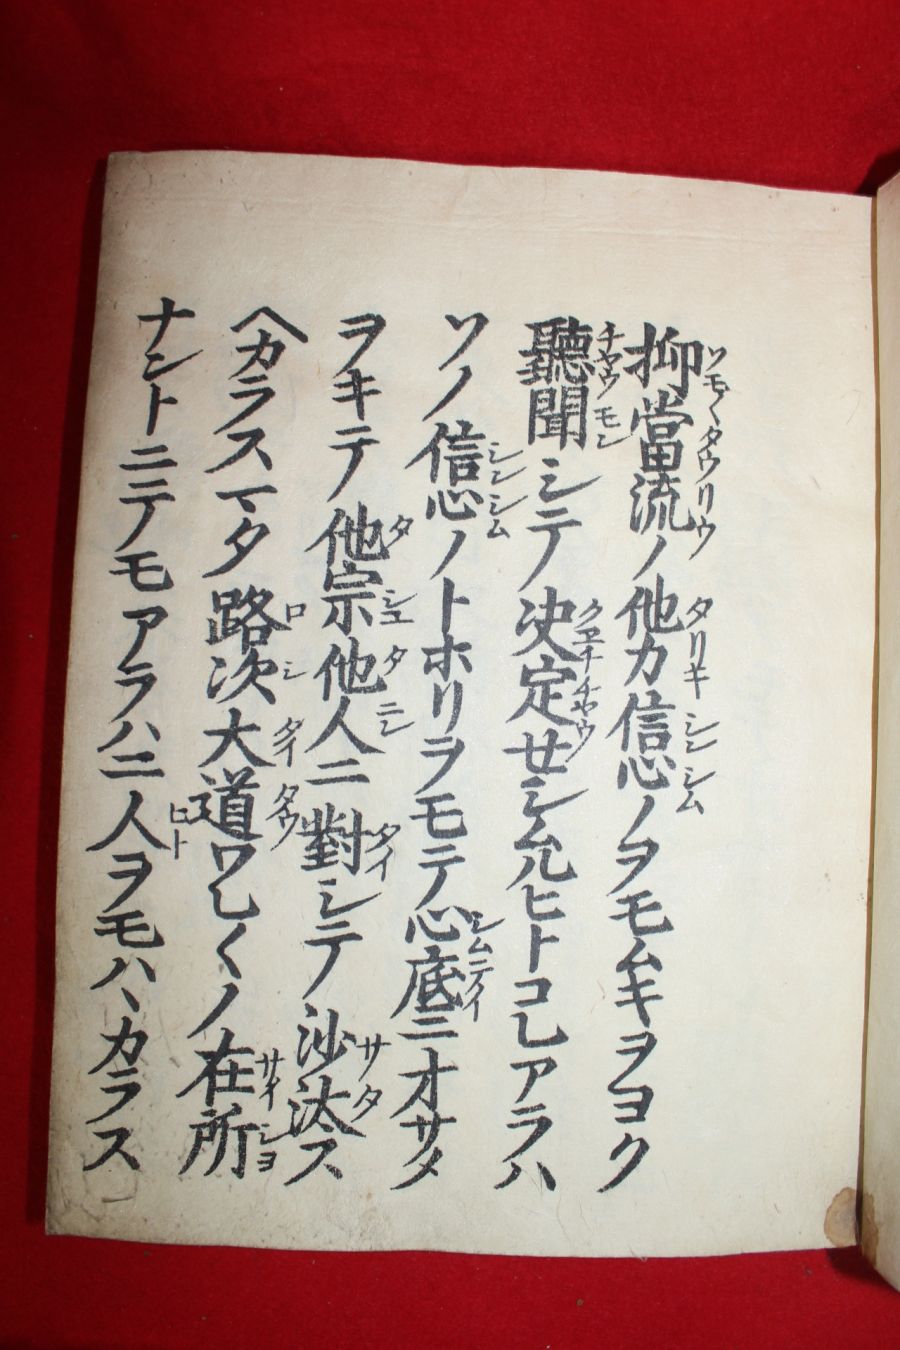 抑當流ノ他力信心ノヲモムキヲヨク
聽聞シテ决定セシムルヒトコレアラハ
ソノ信心ノトホリヲモテ心底ニオサメ
ヲキテ他宗他人ニ對シテ沙汰ス
ヘカラスマタ路次大道ワレ〱ノ在所
ナントニテモアラハニ人ヲモハヽカラス